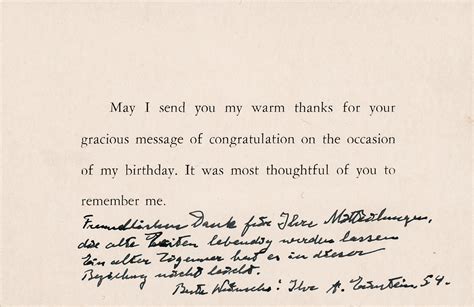 May I send you my warm thanks for your
gracious message of congratulation on the occasion
of my birthday. It was most thoughtful of you to
remember me.
Freundlichen Dank für Ihre Mitteilungen,
die alte Zeiten lebendig werden lassen
Ein alter Zigeuner hat es in dieser
Beziehung nicht leicht.
Beste Wünsche: Ihr A. Einstein 54.